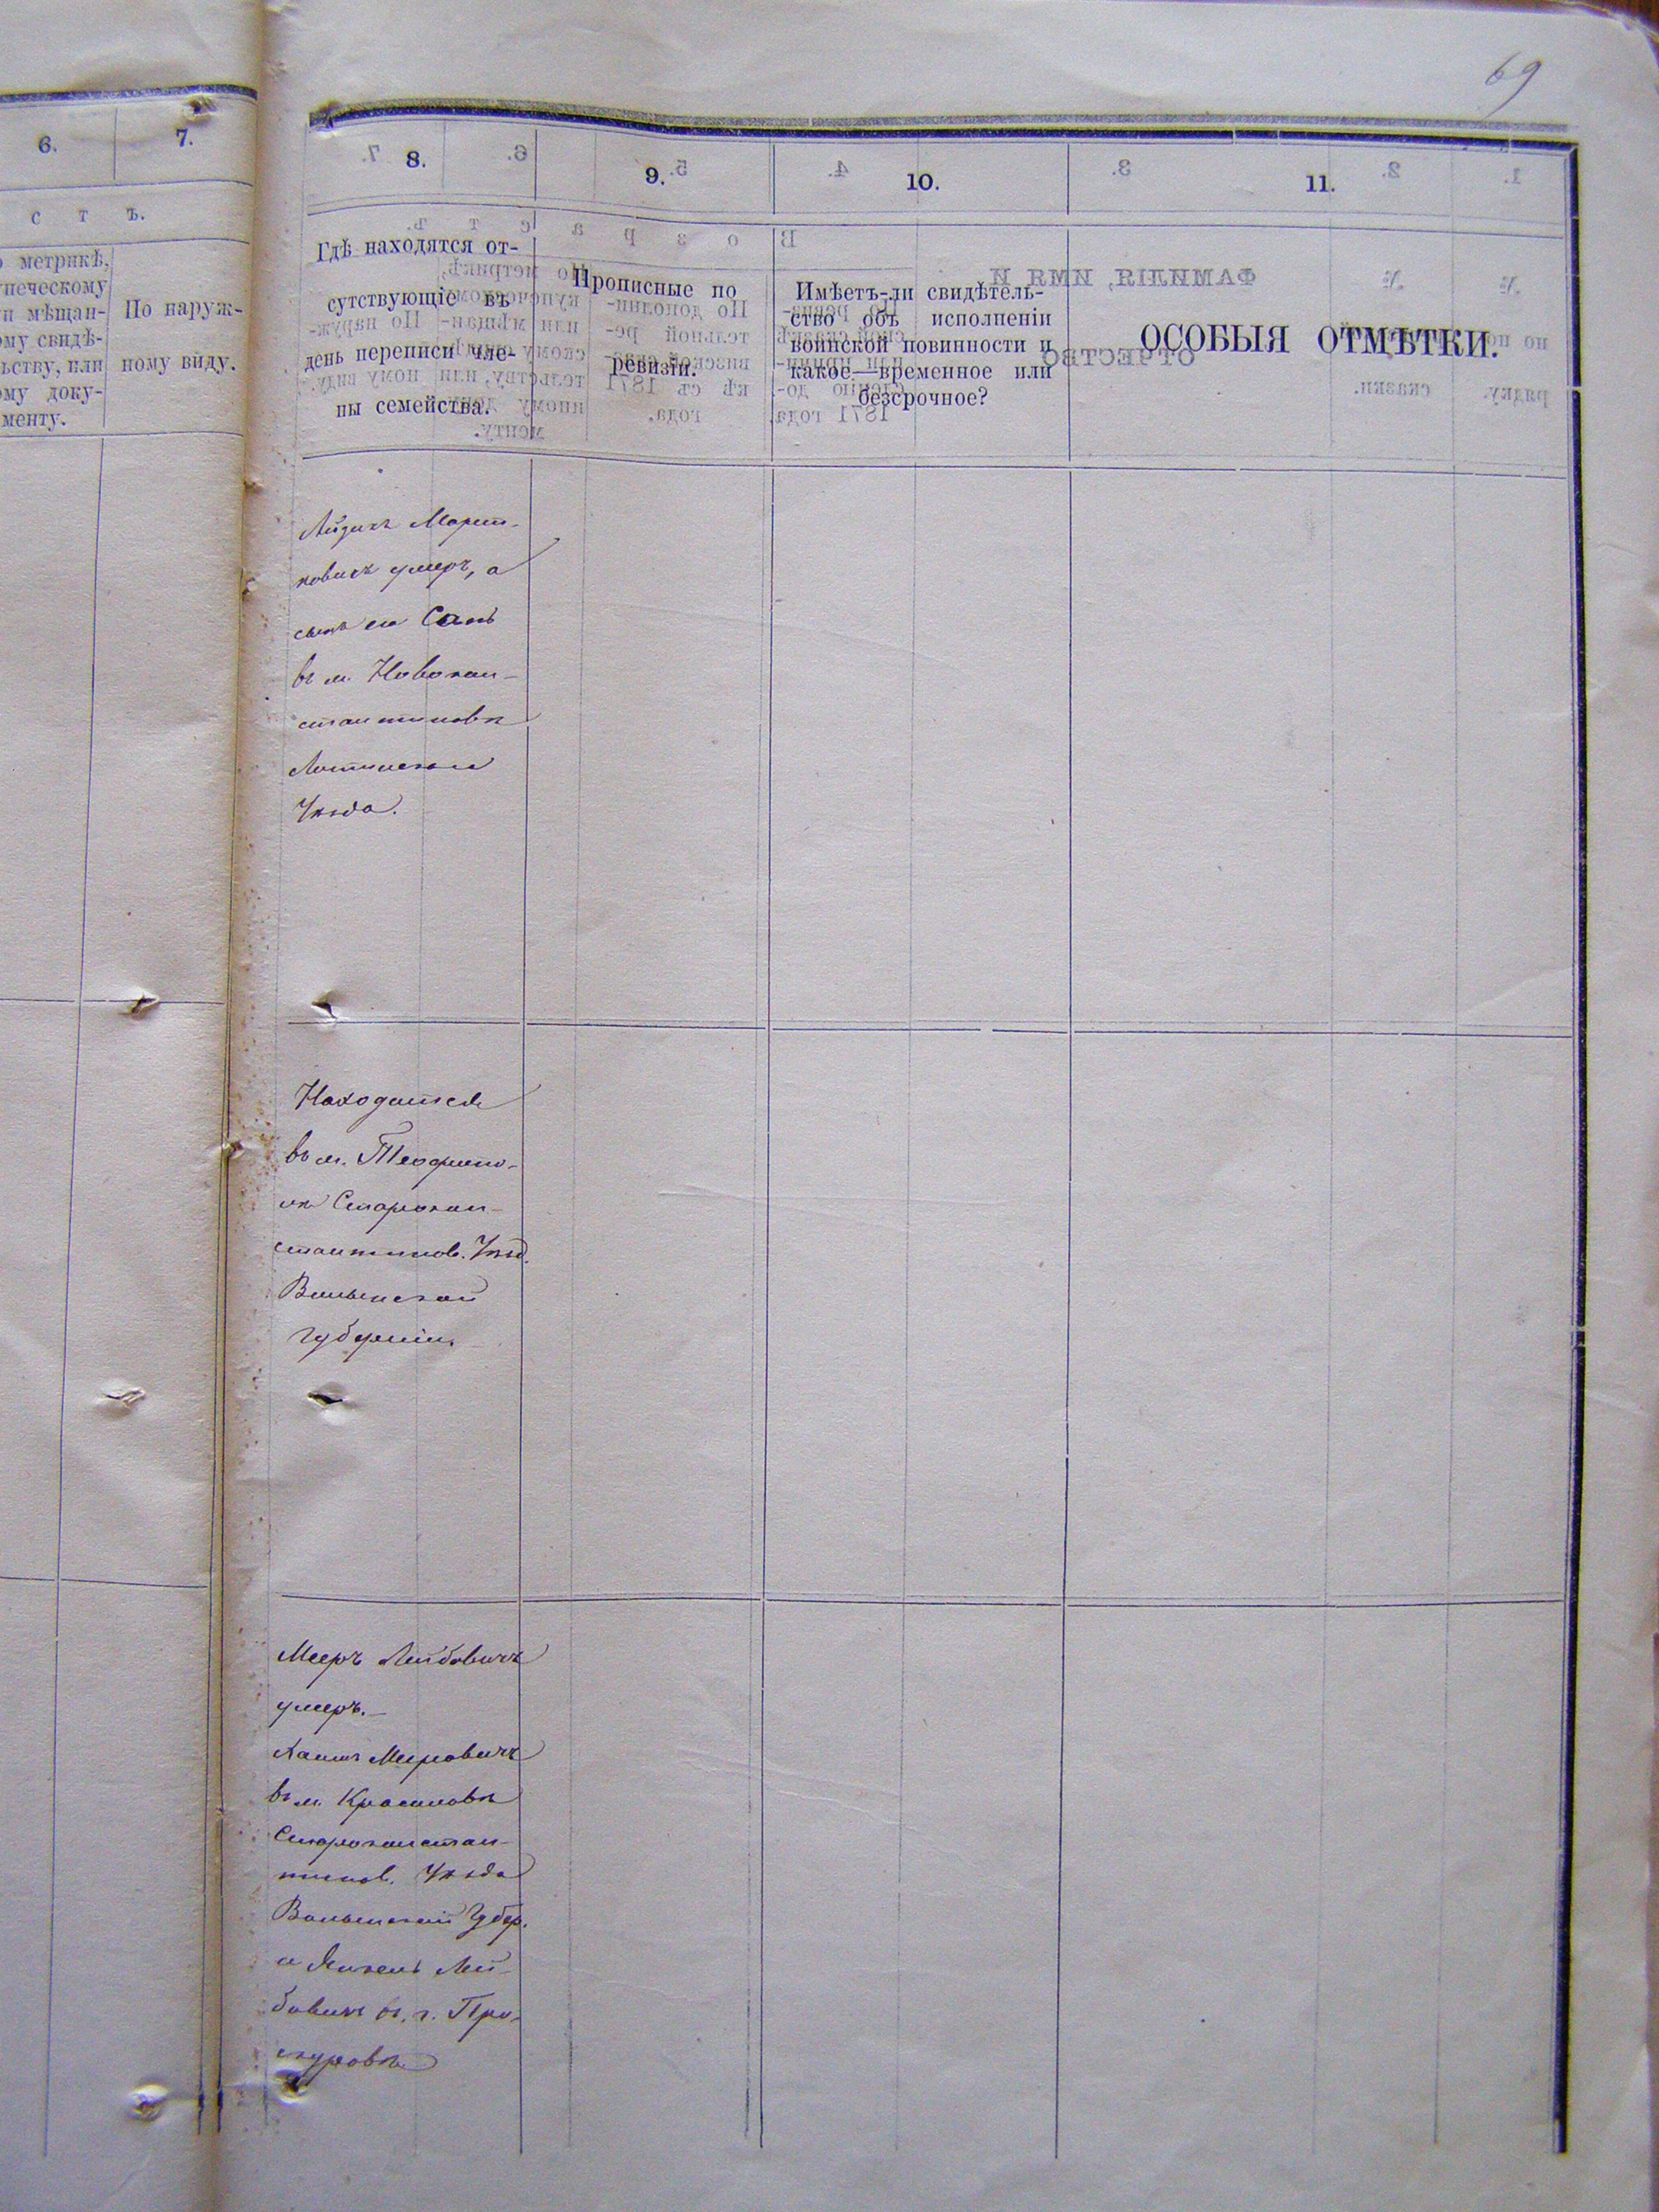 69
6.
7.
8.
9.
10.
11.
с т ъ.
метрикѣ,
купеческому
мѣщан-
свидѣ-
или
доку-
менту.
По наруж-
ному виду.
Гдѣ находятся от-
сутствующіе въ
день переписи чле-
ны семейства.
Прописные по
ревизіи.
Имѣетъ-ли свидѣтель-
ство объ исполненіи
воинской повинности и
какое—временное или
безсрочное?
ОСОБЫЯ ОТМѢТКИ.
Март-
ковичъ умеръ, а
сынъ его
въ м. Новокон-
стантиновѣ
Летичевскаго
Уѣзда.
Находится
въ м. Теофипо-
лѣ Старокон-
стантинов. Уѣзд.
Волынской
губерніи.
Мееръ Лейбовичъ
умеръ.—
Хаимъ Меировичъ
въ м. Красиловѣ
Староконстан-
тинов. Уѣзда
Волынской Губер.
и Янкель Лей-
бовичъ въ г. Про-
скуровѣ